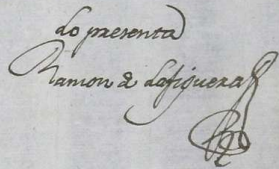 lo presenta
Ramon de Lafiguera